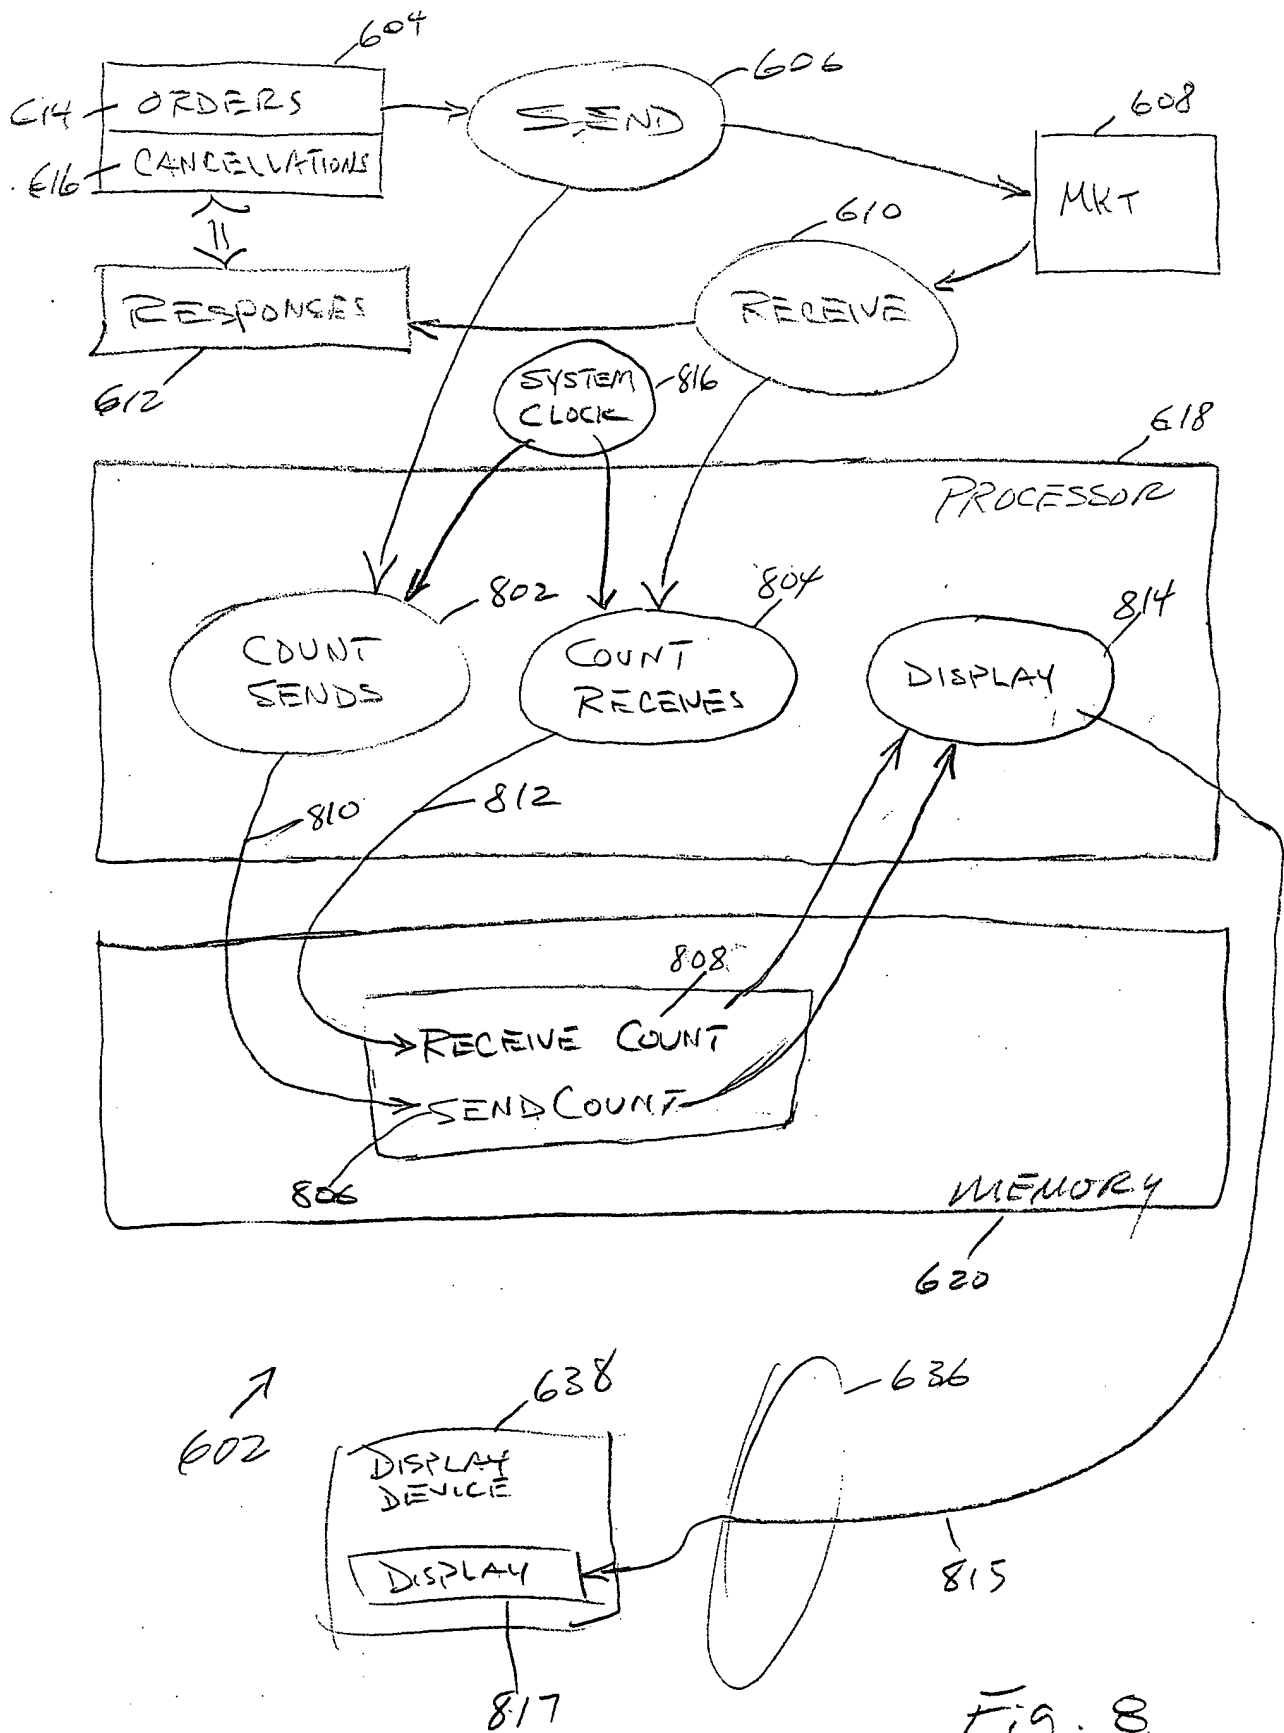 604
614
ORDERS
616
CANCELLATIONS
SEND
606
608
MKT
610
RECEIVE
RESPONSES
612
SYSTEM
CLOCK
816
618
PROCESSOR
802
COUNT
SENDS
804
COUNT
RECEIVES
814
DISPLAY
810
812
808
RECEIVE COUNT
SEND COUNT
806
MEMORY
620
602
638
DISPLAY
DEVICE
DISPLAY
817
636
815
Fig. 8